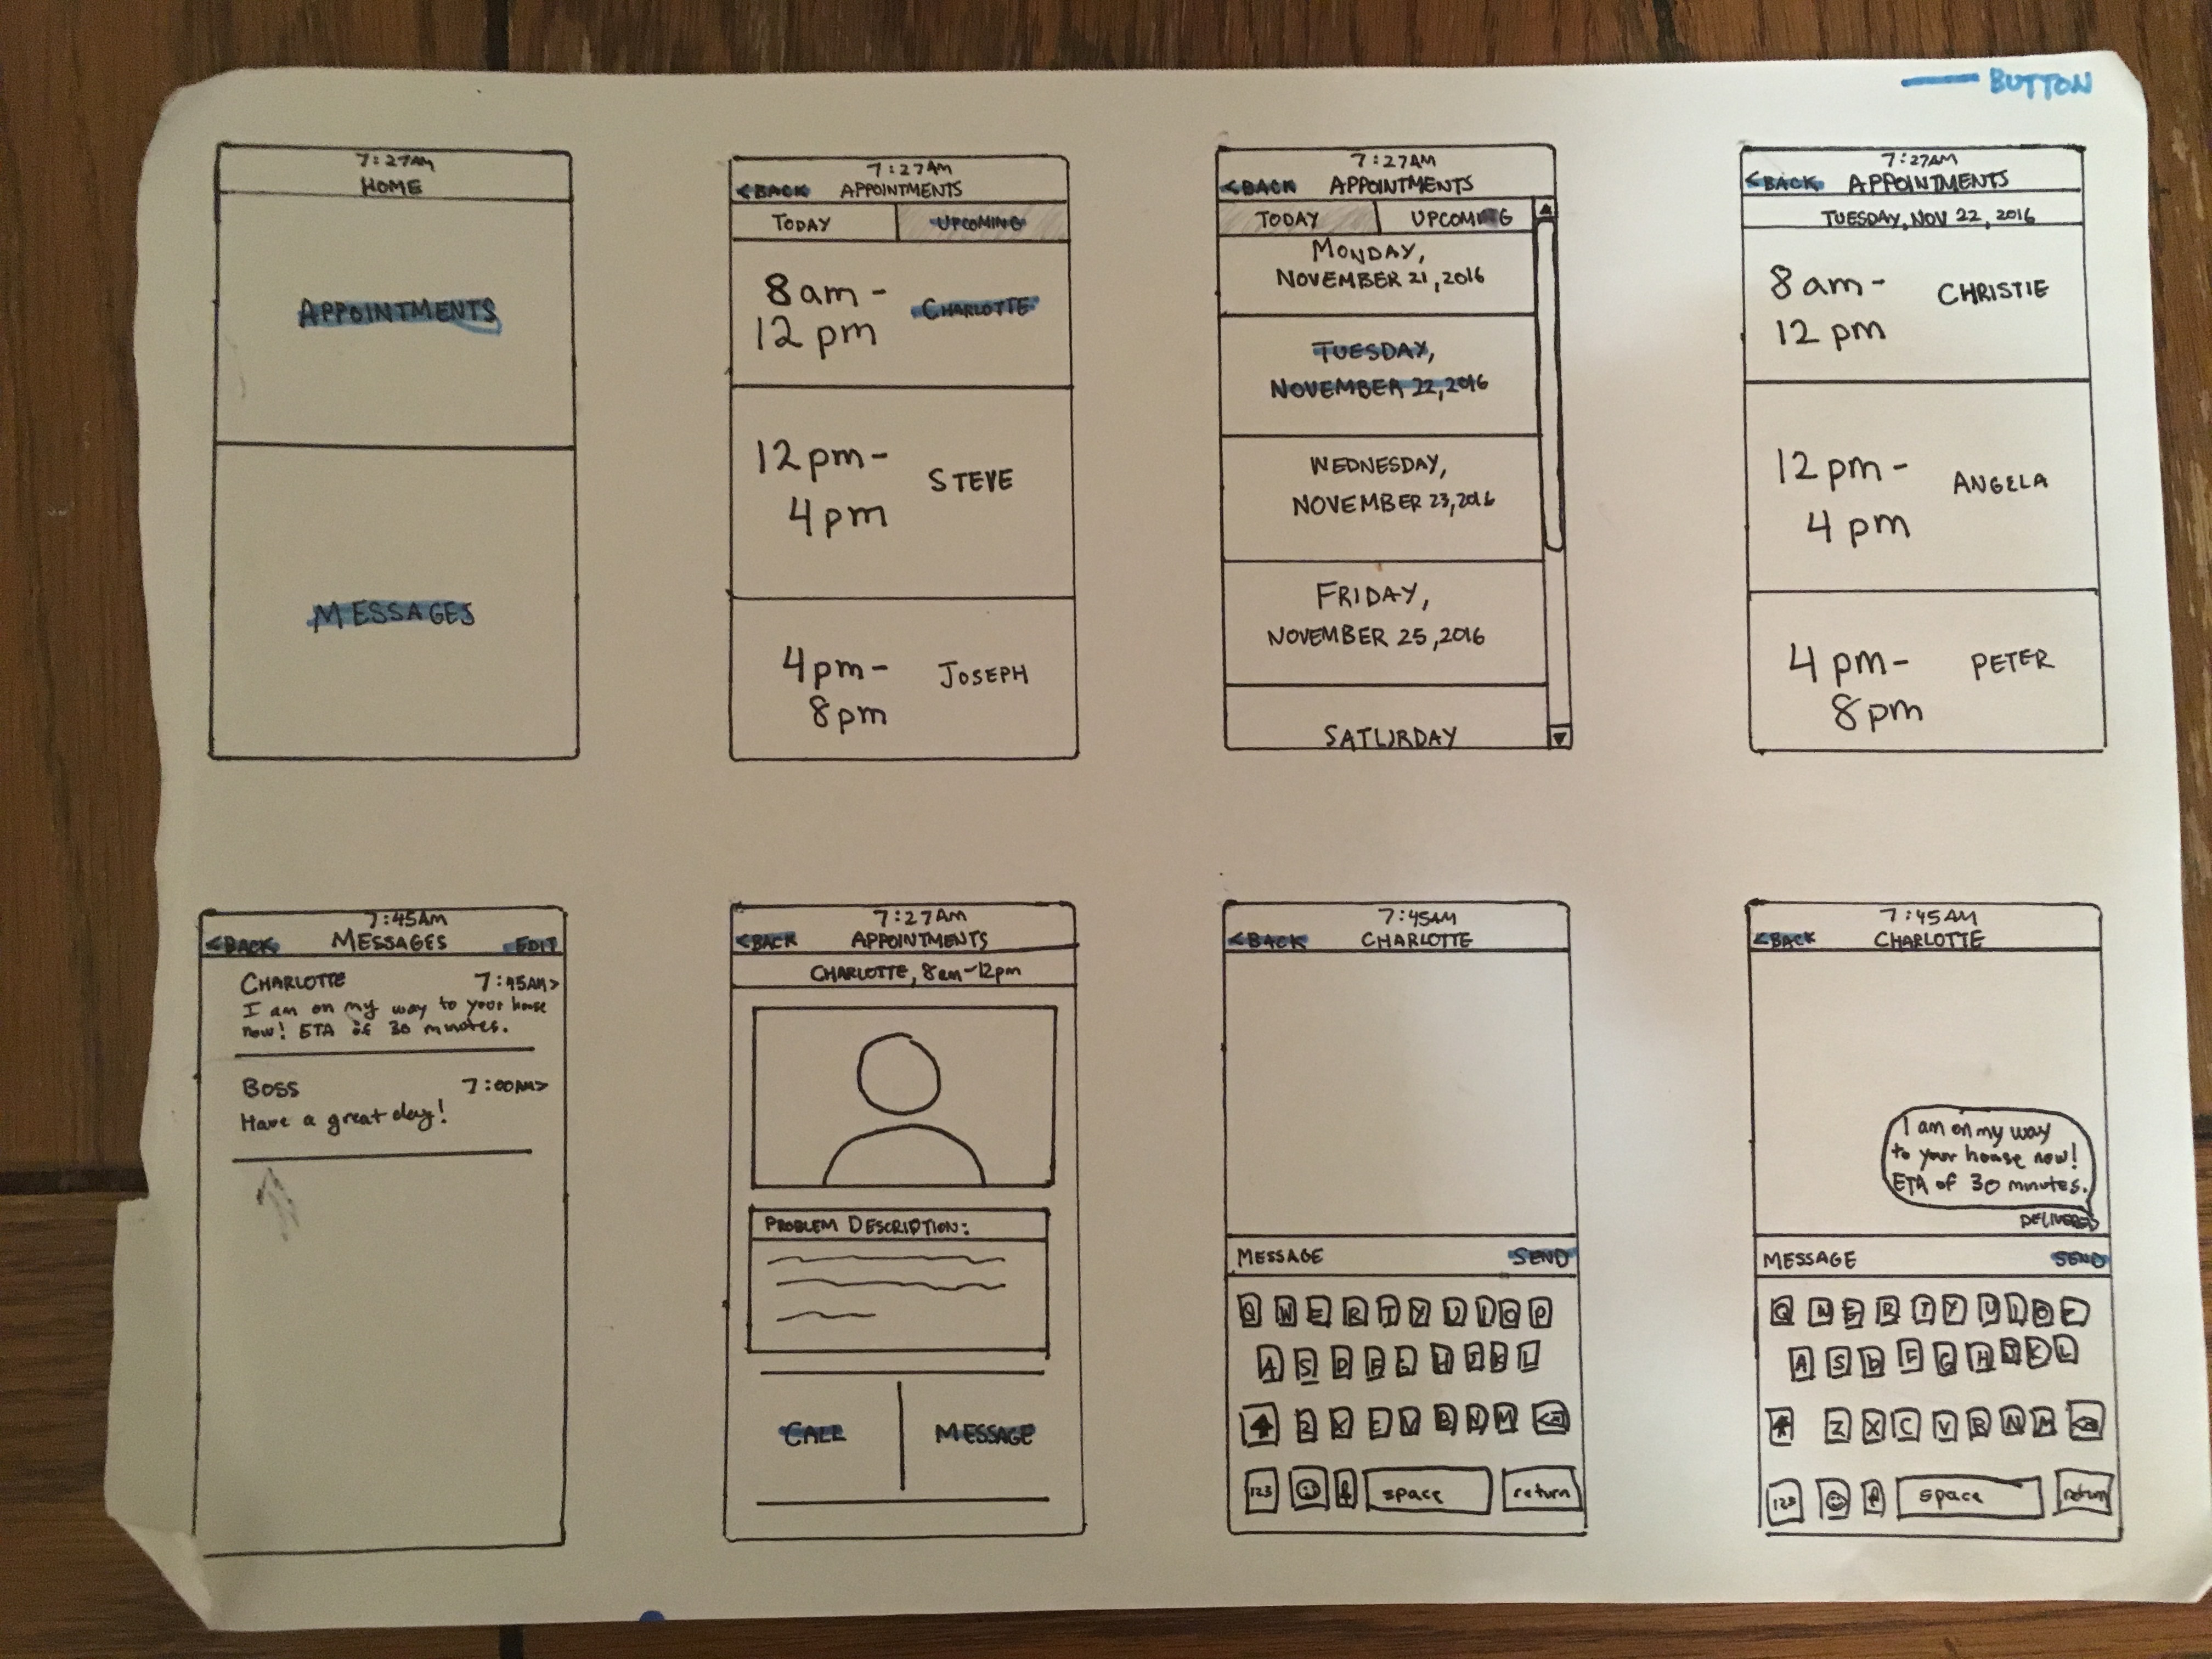 BUTTON
7:27AM
HOME
APPOINTMENTS
MESSAGES
7:27AM
<BACK APPOINTMENTS
TODAY UPCOMING
8am - CHARLOTTE
12 pm
12pm - STEVE
4pm
4pm - JOSEPH
8pm
7:27AM
<BACK APPOINTMENTS
TODAY UPCOMING
MONDAY,
NOVEMBER 21, 2016
TUESDAY,
NOVEMBER 22, 2016
WEDNESDAY,
NOVEMBER 23, 2016
FRIDAY,
NOVEMBER 25, 2016
SATURDAY
7:27AM
<BACK APPOINTMENTS
TUESDAY, NOV 22, 2016
8am - CHRISTIE
12 pm
12 pm - ANGELA
4 pm
4 pm - PETER
8pm
7:45AM
<BACK MESSAGES EDIT
CHARLOTTE 7:45AM>
I am on my way to your house
now! ETA of 30 minutes.
BOSS 7:00AM>
Have a great day!
7:27AM
<BACK APPOINTMENTS
CHARLOTTE, 8am-12pm
PROBLEM DESCRIPTION:
CALL MESSAGE
7:45AM
<BACK CHARLOTTE
MESSAGE SEND
Q W E R T Y U I O P
A S D F G H J K L
Z X C V B N M
123 space return
7:45AM
<BACK CHARLOTTE
I am on my way
to your house now!
ETA of 30 minutes.
DELIVERED
MESSAGE SEND
Q W E R T Y U I O P
A S D F G H J K L
Z X C V B N M
123 space return